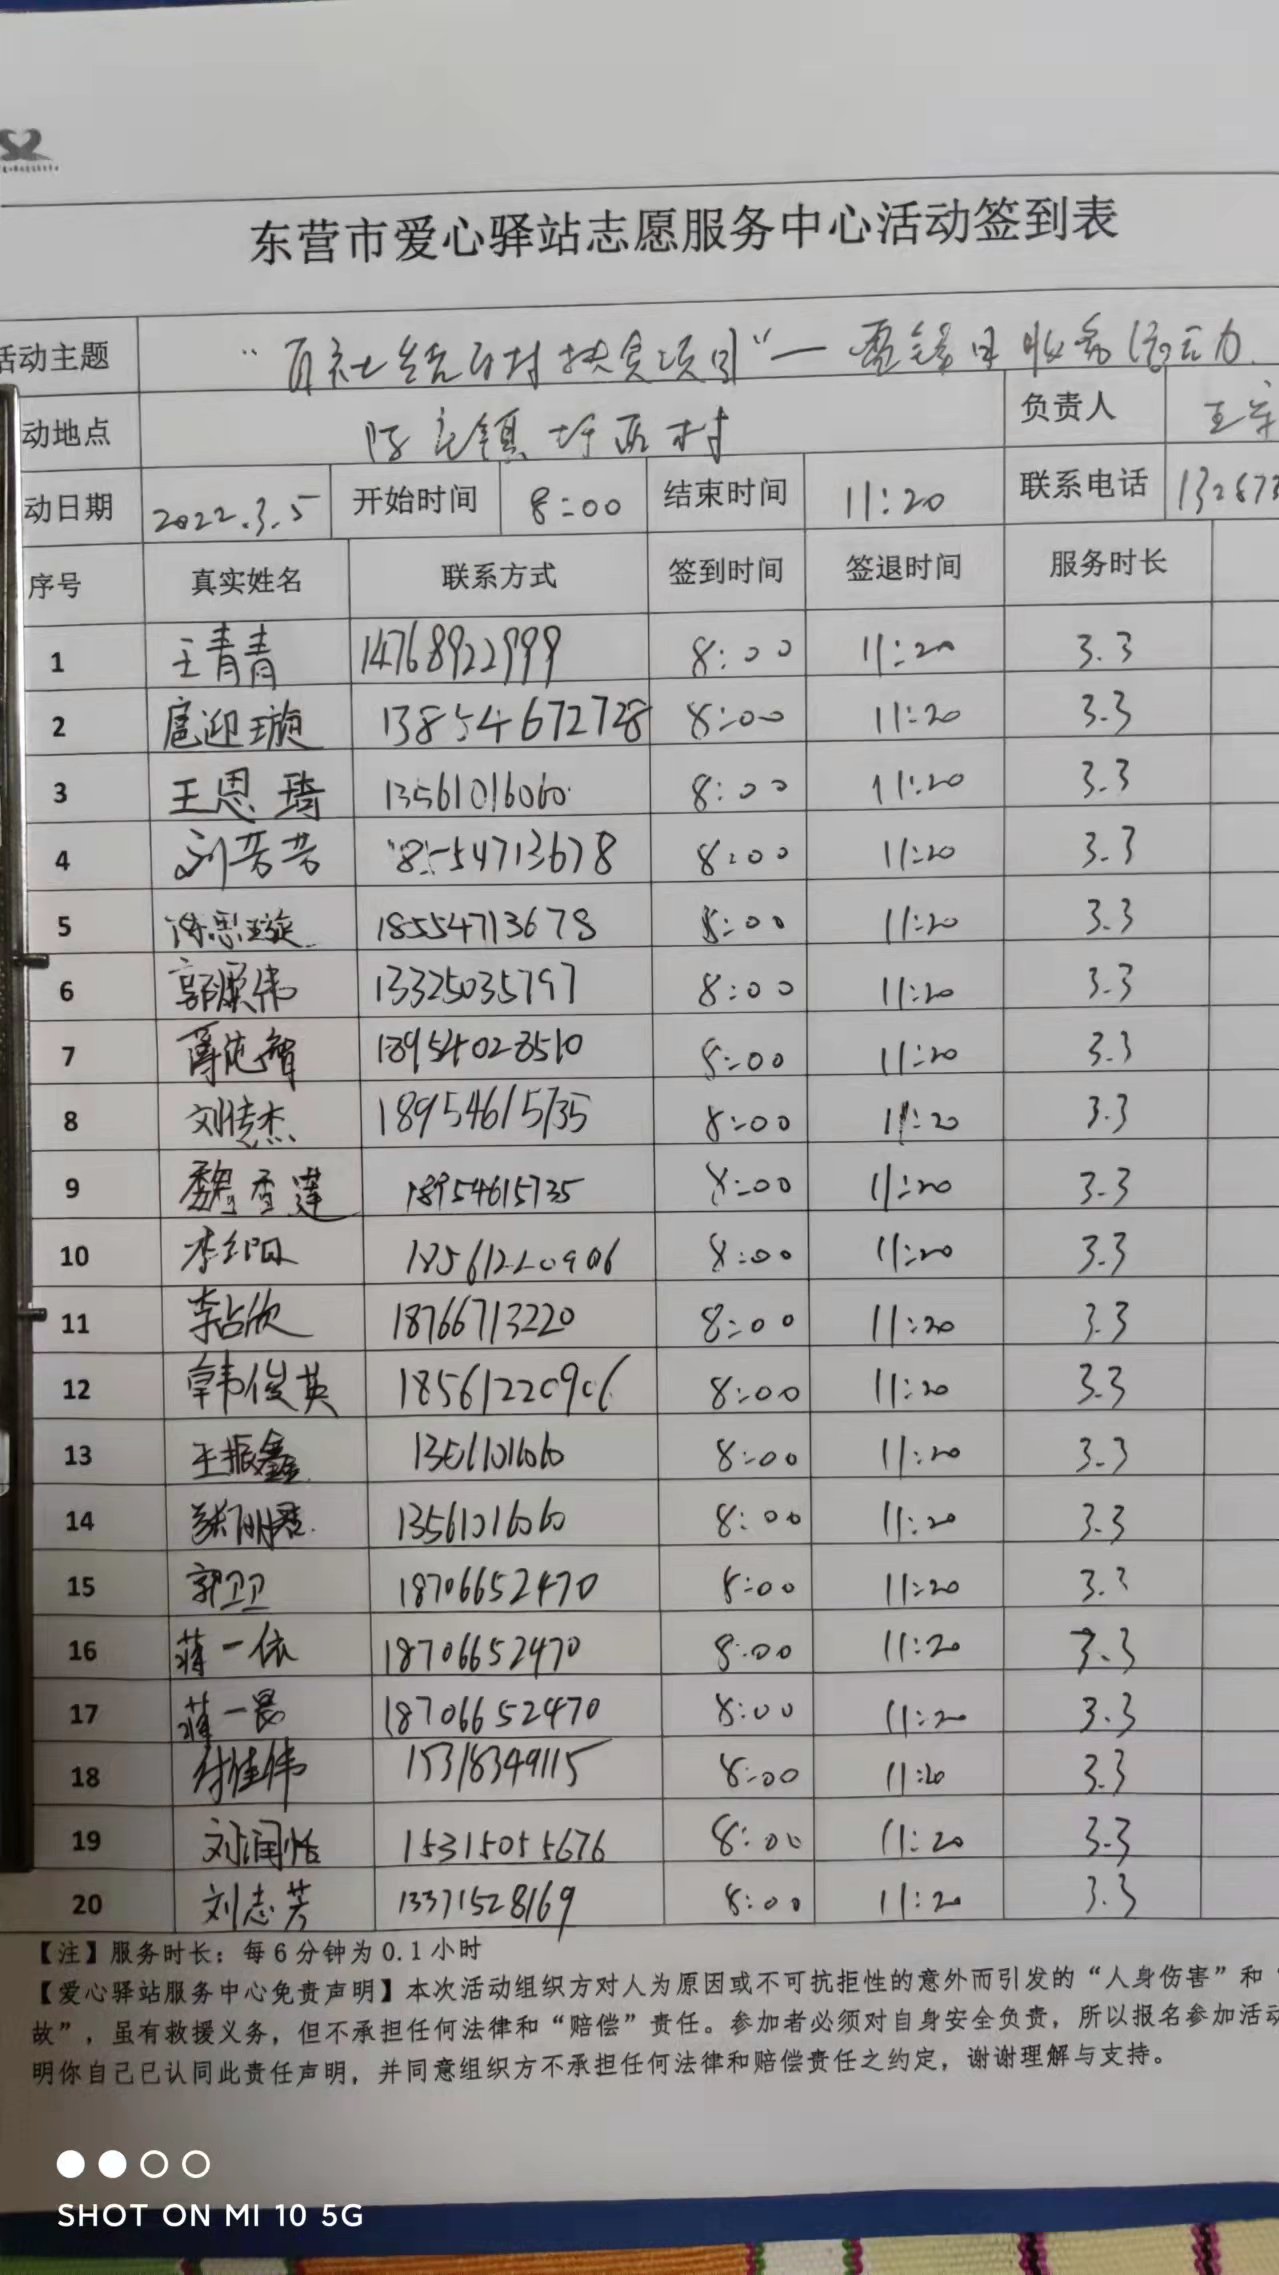 东营市爱心驿站志愿服务中心活动签到表
活动主题 "百社结百村扶贫项目"一
动地点 村 负责人 王
动日期 2022.3.5 开始时间 8:00 结束时间 11:20 联系电话 132673
序号 真实姓名 联系方式 签到时间 签退时间 服务时长
1 王青青 14768922999 8:00 11:20 3.3
2 扈迎璇 13854672728 8:00 11:20 3.3
3 王恩琦 13561016060 8:00 11:20 3.3
4 刘芳芳 18554713678 8:00 11:20 3.3
5 思璇 18554713678 8:00 11:20 3.3
6 郭康伟 13325035797 8:00 11:20 3.3
7 18954028510 8:00 11:20 3.3
8 刘传杰 18954615735 8:00 11:20 3.3
9 魏香莲 18954615735 8:00 11:20 3.3
10 李 18561220906 8:00 11:20 3.3
11 李占欣 18766713220 8:00 11:20 3.3
12 韩俊英 18561220906 8:00 11:20 3.3
13 王振鑫 13561016060 8:00 11:20 3.3
14 张明 13561016060 8:00 11:20 3.3
15 郭卫卫 18706652470 8:00 11:20 3.3
16 蒋一依 18706652470 8:00 11:20 3.3
17 蒋一 18706652470 8:00 11:20 3.3
18 付佳伟 15318349115 8:00 11:20 3.3
19 刘润恬 15315055676 8:00 11:20 3.3
20 刘志芳 13371528169 8:00 11:20 3.3
【注】服务时长：每6分钟为0.1小时
【爱心驿站服务中心免责声明】本次活动组织方对人为原因或不可抗拒性的意外而引发的“人身伤害”和“
故”，虽有救援义务，但不承担任何法律和“赔偿”责任。参加者必须对自身安全负责，所以报名参加活动
明你自己已认同此责任声明，并同意组织方不承担任何法律和赔偿责任之约定，谢谢理解与支持。
SHOT ON MI 10 5G